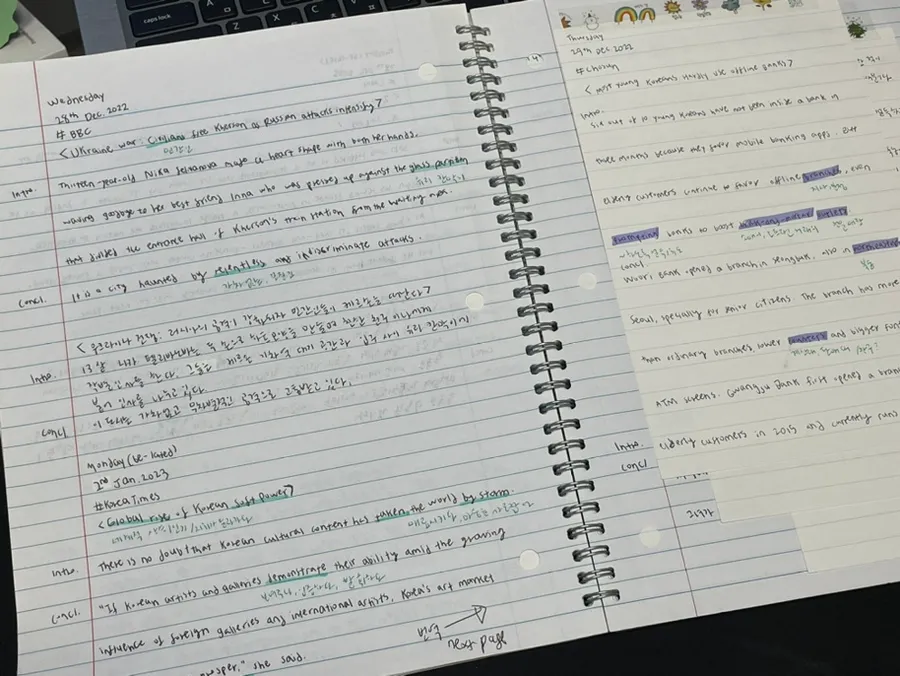 caps lock
A
Z
X
C
Wednesday
28th Dec. 2022
# BBC
<Ukraine war: Civilians flee Kherson as Russian attacks intensify>
민간인
Intro. Thirteen-year-old Nika Selivanova made a heart shape with both her hands,
waving goodbye to her best friend Inna who was pressed up against the glass partition
유리 칸막이
that divided the entrance hall of Kherson's train station from the waiting area.
Concl. It is a city haunted by relentless and indiscriminate attacks.
가차없는, 무차별
<우크라이나 전쟁: 러시아의 공격이 강화되자 민간인들이 헤르손을 떠나다>
Intro. 13살 니카 셀리바노바는 두 손으로 하트 모양을 만들며 친한 친구 이나에게
작별인사를 한다. 그들은 헤르손 기차역 대기 공간과 입구 사이 유리 칸막이에
붙어 인사를 나누고 있다.
Concl 이 도시는 가차없고 무차별적인 공격으로 고통받고 있다.
Monday (be-lated)
2nd Jan. 2023
#Korea Times
<Global rise of Korean soft power>
Intro. There is no doubt that Korean cultural content has taken the world by storm.
매료시키다,
Concl. "If Korean artists and galleries demonstrate their ability amid the growing
보여주다, 입증하다, 발휘하다
influence of foreign galleries and international artists, Korea's art market
prosper," she said.
번역
next page
Thursday
29th Dec 2022
# Chosun
<most young Koreans hardly use offline banks>
Intro.
Six out of 10 young Koreans have not been inside a bank in
three months because they favor mobile banking apps. But
elderly customers continue to favor offline branches, even
banks to boost brick-and-mortar
concl.
Woori Bank opened a branch in Seongbuk, also in
Seoul, specially for senior citizens. The branch has more
than ordinary branches, lower counters and bigger fon
ATM screens. Gwangju Bank first opened a bran
elderly customers in 2015 and currently runs
Intro.
Concl